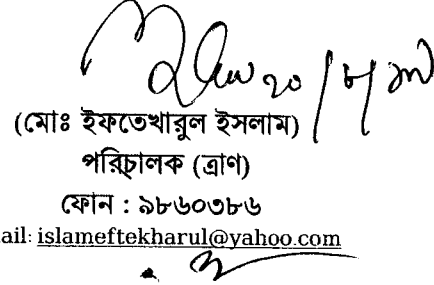 ২০/৮/১৭
(মোঃ ইফতেখারুল ইসলাম)
পরিচালক (ত্রাণ)
ফোন : ৯৮৬০৩৮৬
ail: islameftekharul@yahoo.com